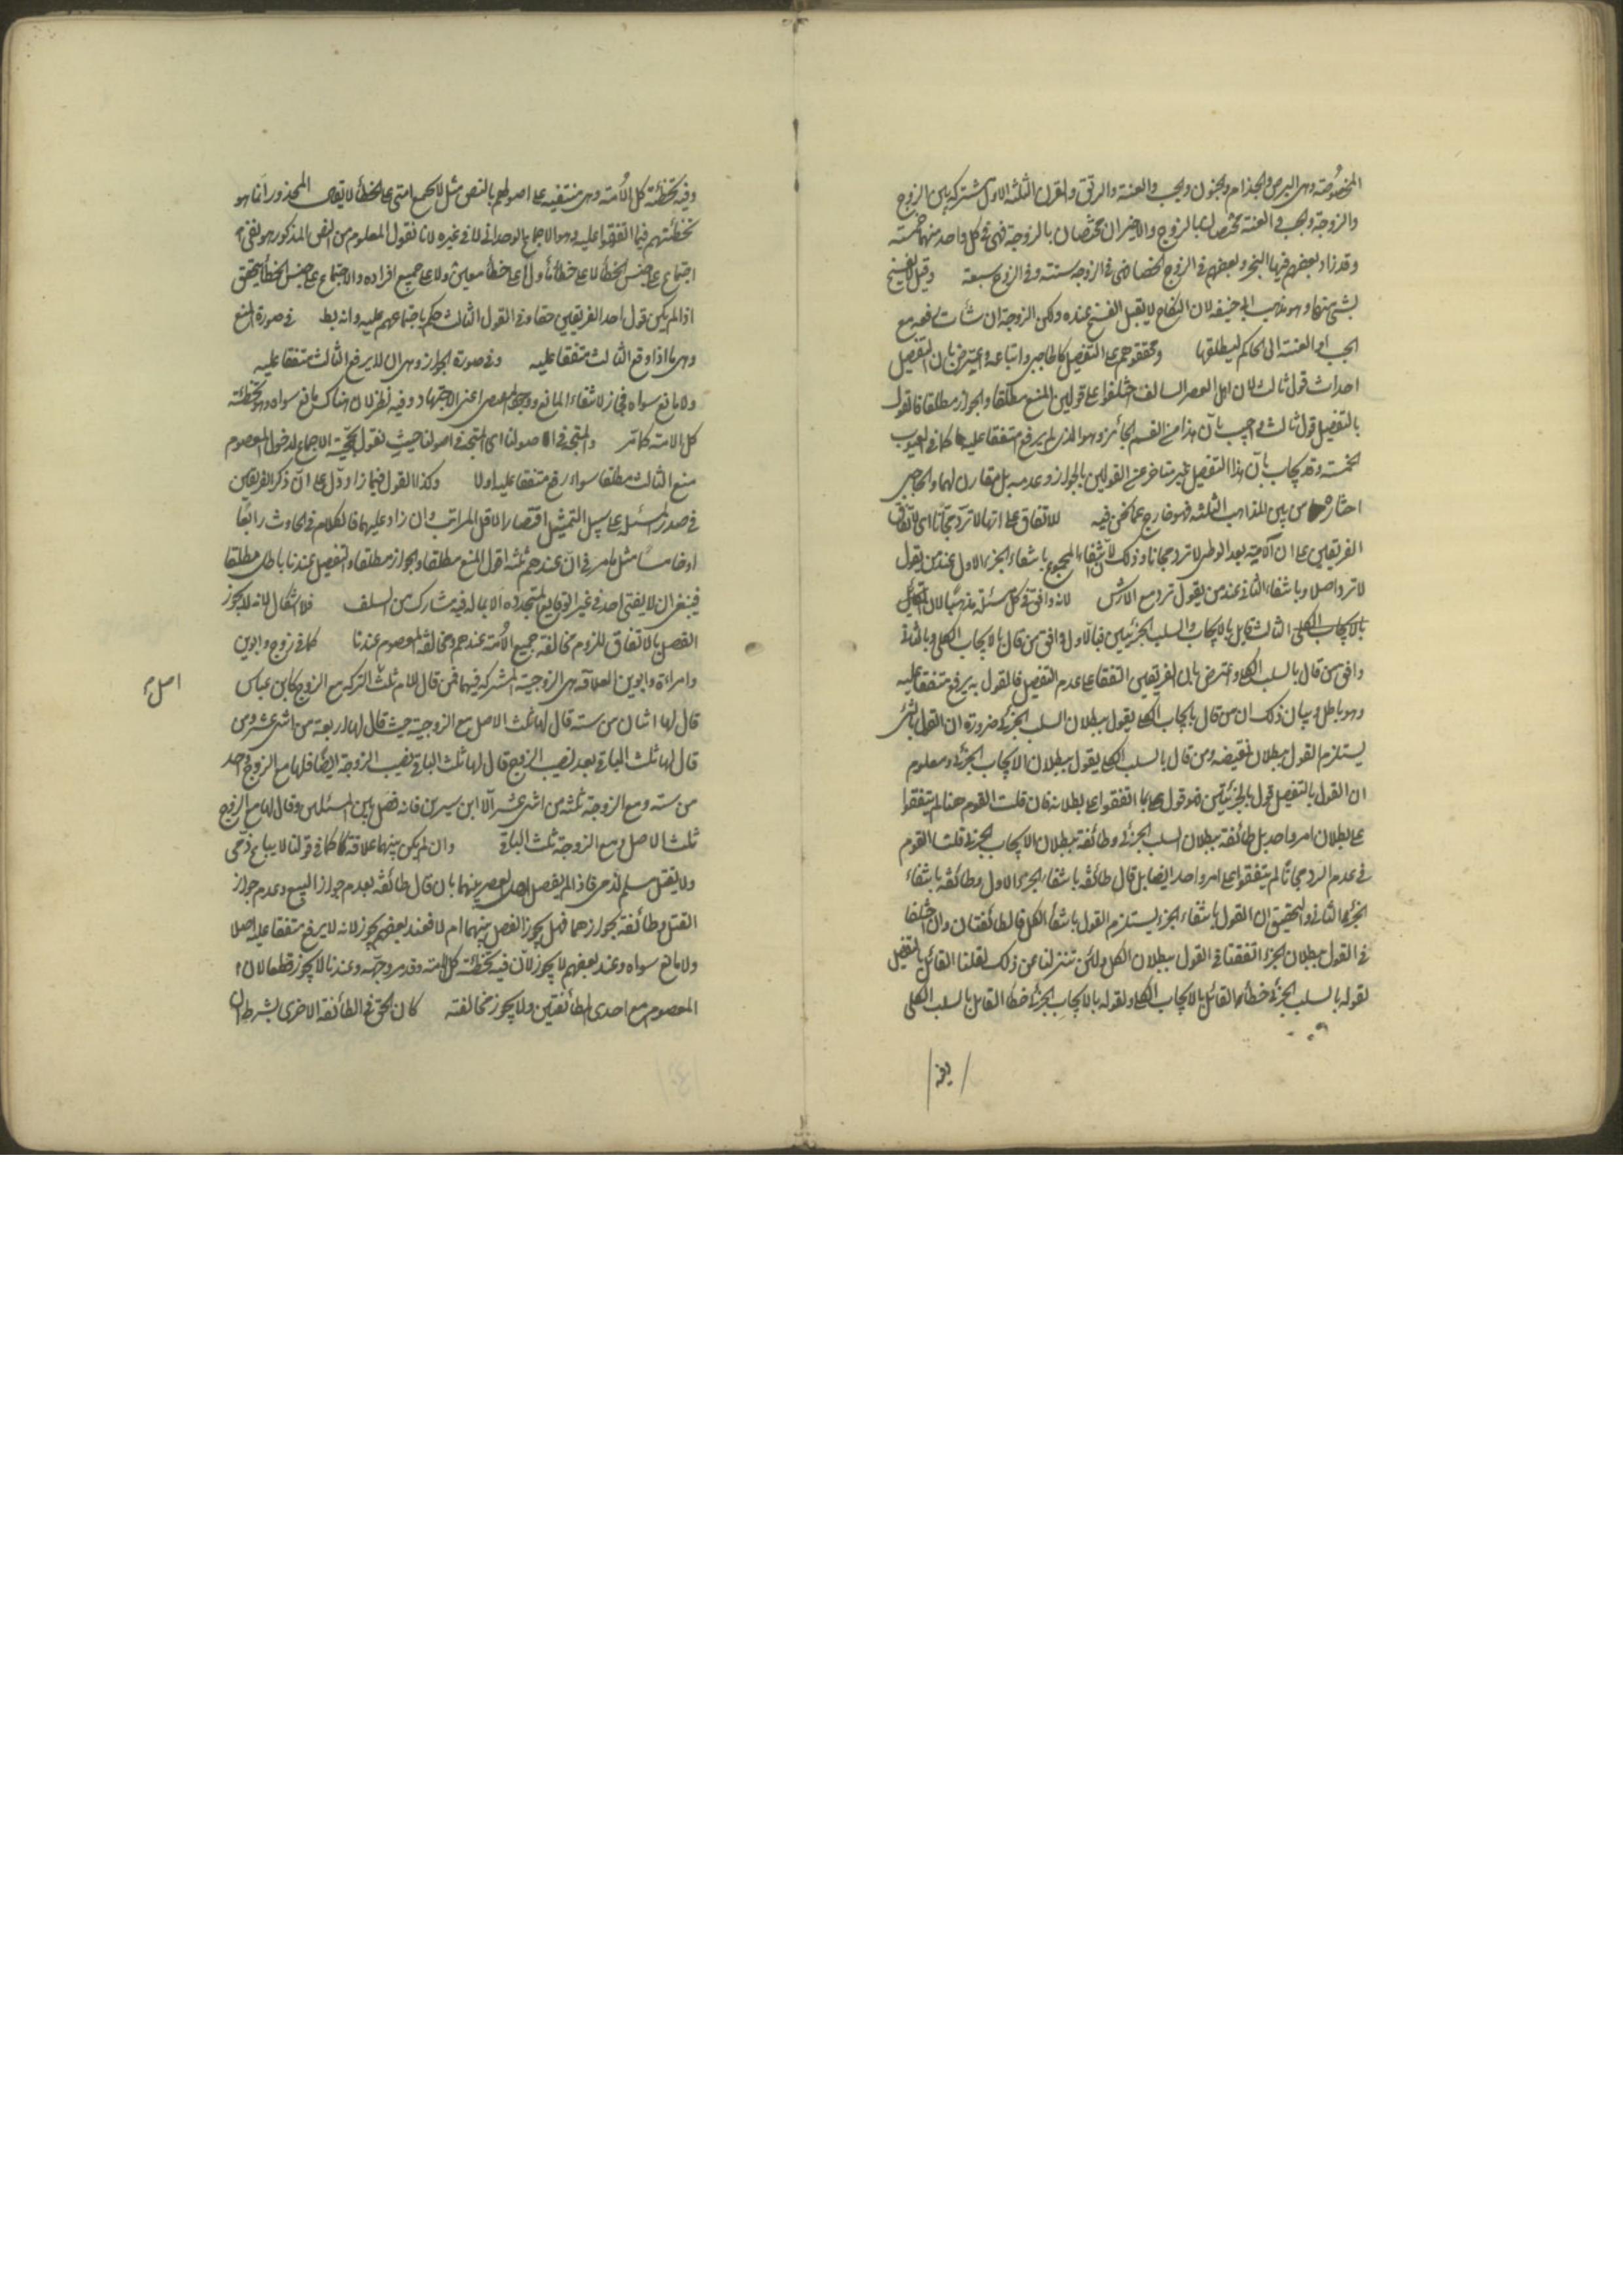 المخصوصة وهى البرص والجذام والجنون والجب والعنة والرتق والقرن الثلثة الاول مشتركة بين الزوج
والزوجة والجب والعنة مختصان بالزوج والاخيران مختصان بالزوجة فهى فى كل واحد منهما خمسة
وقد زاد بعضهم فيها البخر وبعضهم فى الزوج الخصا فهى فى الزوجة ستة وفى الزوج سبعة وقيل لا يفسخ
بشئ منها وهو مذهب ابى حنيفة لان النكاح لا يقبل الفسخ عنده ولكن الزوجة ان شاءت رفعه مع
الجب او العنة الى الحاكم ليطلقها ومحققوهم على التفصيل كالحاجبى واتباعه واعترض بان التفصيل
احداث قول ثالث لان اهل العصر السالف اختلفوا على قولين المنع مطلقا والجواز مطلقا فالقول
بالتفصيل قول ثالث واجيب بان هذا من القسم الجائز وهو الذى لم يرفع متفقا عليه كما فى العيوب
الخمسة وقد يجاب بان هذا التفصيل غير متاخر عن القولين بالجواز وعدمه بل مقارن لهما والحاجبى
اختاره من بين المذاهب الثلثة فهو خارج عما نحن فيه للاتفاق على انها لا ترد مجانا اى لاتفاق
الفريقين على ان الامة بعد الوطى لا ترد مجانا وذلك لانتفاء المجموع بانتفاء الجزء الاول عند من يقول
لا ترد اصلا وبانتفاء الثانى عند من يقول ترد مع الارش لانه وافق فى كل مسئلة مذهبا لان القائل
بالايجاب الكلى الثالث قابل بالايجاب والسلب الجزئيين فبالاول وافق من قال بالايجاب الكلى وبالثانى
وافق من قال بالسلب الكلى واعترض بان الفريقين اتفقا على عدم التفصيل فالقول به يرفع متفقا عليه
وهو باطل وبيان ذلك ان من قال بالايجاب الكلى يقول ببطلان السلب الجزئى ضرورة ان القول بالشئ
يستلزم القول ببطلان نقيضه ومن قال بالسلب الكلى يقول ببطلان الايجاب الجزئى ومعلوم
ان القول بالتفصيل قول بالجزئيتين فهو قول بما اتفقوا على بطلانه فان قلت القوم هنا لم يتفقوا
على بطلان امر واحد بل طائفة ببطلان السلب الجزئى وطائفة ببطلان الايجاب الجزئى قلت القوم
فى عدم الرد مجانا لم يتفقوا على امر واحد ايضا بل قال طائفة بانتفاء الجزء الاول وطائفة بانتفاء
الجزء الثانى والتحقيق ان القول بانتفاء الجزء يستلزم القول بانتفاء الكل فالطائفتان وان اختلفتا
فى القول ببطلان الجزء اتفقتا فى القول ببطلان الكل ولئن تنزلنا عن ذلك لقلنا القائل بالتفصيل
لقوله بالسلب الجزئى خطأ القائل بالايجاب الكلى ولقوله بالايجاب الجزئى خطأ القائل بالسلب الكلى
وفيه تخطئة كل الامة وهى منتفية على اصولهم بالنص مثل لا تجتمع امتى على الخطأ لا يقال المحذور انما هو
تخطئتهم فيما اتفقوا عليه وهو الاجماع الوحدانى لا فى غيره لانا نقول المعلوم من النص المذكور هو نفى
اجتماع على جنس الخطأ لا على خطأ ما ولا على خطأ معين ولا على جميع افراده والاجتماع على جنس الخطأ يتحقق
اذا لم يكن قول احد الفريقين حقا وفى القول الثالث حكم باجتماعهم عليه وانه بط فى صورة المنع
وهى ما اذا رفع الثالث متفقا عليه وفى صورة الجواز وهى ان لا يرفع الثالث متفقا عليه
ولا مانع سواه فجاز لانتفاء المانع ووجود المقتضى اعنى الاجتهاد وفيه نظر لان هناك مانع سواه وهو تخطئة
كل الامة كما مر والمتجه فى اصولنا اى المتجه فى اصولنا حيث نقول بحجية الاجماع لدخول المعصوم
منع الثالث مطلقا سواء رفع متفقا عليه او لا وكذا القول فيما زاد دل على ان ذكر الفريقين
فى صدر المسئلة على سبيل التمثيل اقتصارا لاقل المراتب وان زاد عليهما فالكلام فى الحادث رابعا
او خامسا مثل ما مر فى ان عندهم ثلثة اقوال المنع مطلقا والجواز مطلقا والتفصيل عندنا باطل مطلقا
فينبغى ان لا يفتى احد فى غير الوقايع المتجددة الا بما له فيه مشارك من السلف فلا اشكال فى انه لا يجوز
الفصل بالاتفاق للزوم مخالفة جميع الامة عندهم ومخالفة المعصوم عندنا كما فى زوج وابوين
وامراة وابوين العلاقة هى الزوجية المشتركة فيهما فمن قال للام ثلث التركة مع الزوج كابن عباس
قال لها اثنان من ستة قال لها ثلث الاصل مع الزوجة حيث قال لها اربعة من اثنى عشر ومن
قال لها ثلث الباقى بعد نصيب الزوج قال لها ثلث الباقى بعد نصيب الزوجة ايضا فلها مع الزوج واحد
من ستة ومع الزوجة ثلثة من اثنى عشر الا ابن سيرين فانه فصل بين المسئلتين وقال لها مع الزوج
ثلث الاصل ومع الزوجة ثلث الباقى وان لم يكن بينهما علاقة كما فى قولنا لا يباع ذمى
ولا يقتل مسلم لذمى فاذا لم يفصل اهل العصر بينهما بان قال طائفة بعدم جواز البيع وعدم جواز
القتل وطائفة بجوازهما فهل يجوز الفصل بينهما ام لا فعند بعضهم يجوز لانه لا يرفع متفقا عليه اصلا
ولا مانع سواه وعند بعضهم لا يجوز لان فيه تخطئة كل الامة وقد مر وجهه وعندنا لا يجوز قطعا لان
المعصوم مع احدى الطائفتين ولا يجوز مخالفته كان الحق فى الطائفة الاخرى بشرط ان